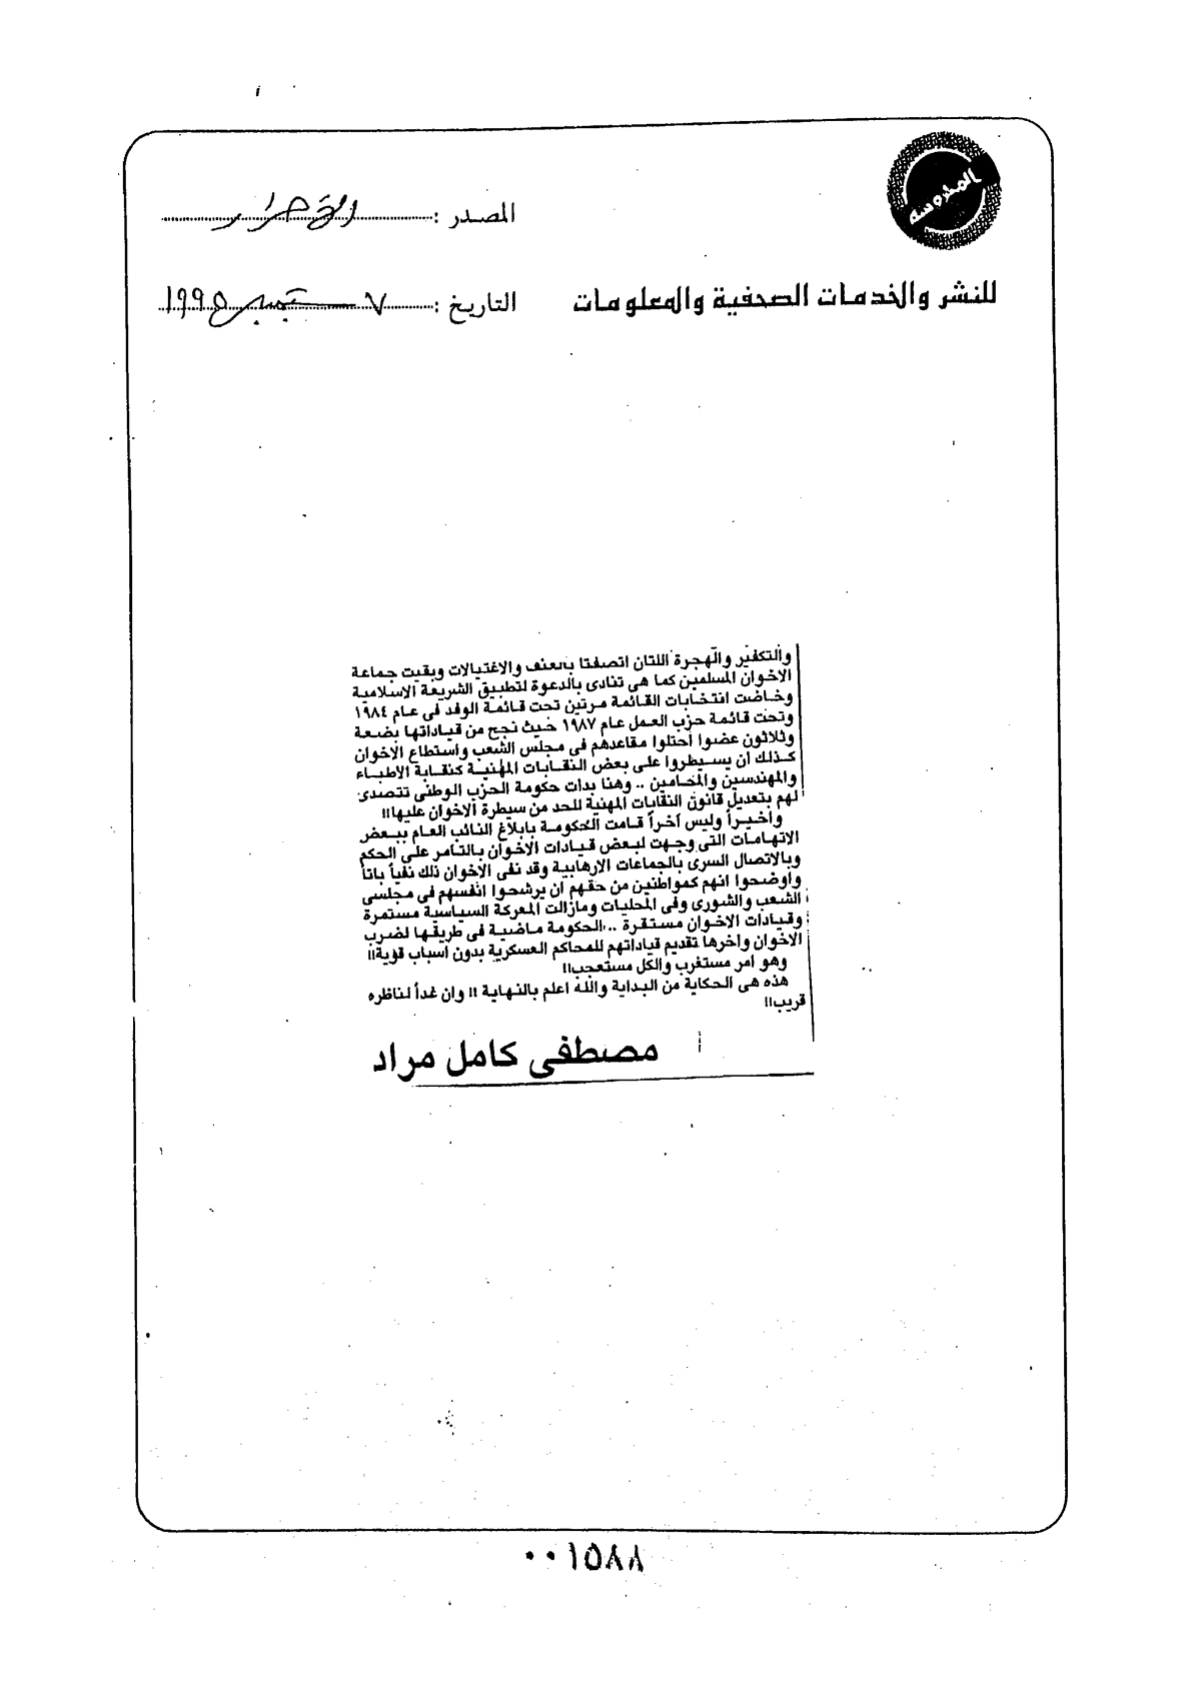 المحروسة
المصدر : الأحرار
للنشر والخدمات الصحفية والمعلومات
التاريخ : ٧ سبتمبر ١٩٩٥
والتكفير والهجرة اللتان اتصفتا بالعنف والاغتيالات وبقيت جماعة
الاخوان المسلمين كما هى تنادى بالدعوة لتطبيق الشريعة الاسلامية
وخاضت انتخابات القائمة مرتين تحت قائمة الوفد فى عام ١٩٨٤
وتحت قائمة حزب العمل عام ١٩٨٧ حيث نجح من قياداتها بضعة
وثلاثون عضوا احتلوا مقاعدهم فى مجلس الشعب واستطاع الاخوان
كذلك أن يسيطروا على بعض النقابات المهنية كنقابة الاطباء
والمهندسين والمحامين .. وهنا بدات حكومة الحزب الوطنى تتصدى
لهم بتعديل قانون النقابات المهنية للحد من سيطرة الاخوان عليها!!
وأخيراً وليس آخراً قامت الحكومة بابلاغ النائب العام ببعض
الاتهامات التى وجهت لبعض قيادات الاخوان بالتامر على الحكم
وبالاتصال السرى بالجماعات الارهابية وقد نفى الاخوان ذلك نفياً باتاً
وأوضحوا انهم كمواطنين من حقهم ان يرشحوا انفسهم فى مجلسى
الشعب والشورى وفى المحليات ومازالت المعركة السياسية مستمرة
وقيادات الاخوان مستقرة .. الحكومة ماضية فى طريقها لضرب
الاخوان وآخرها تقديم قياداتهم للمحاكم العسكرية بدون اسباب قوية!!
وهو امر مستغرب والكل مستعجب!!
هذه هى الحكاية من البداية والله اعلم بالنهاية !! وان غداً لناظره
قريب!!
مصطفى كامل مراد
٠٠١٥٨٨